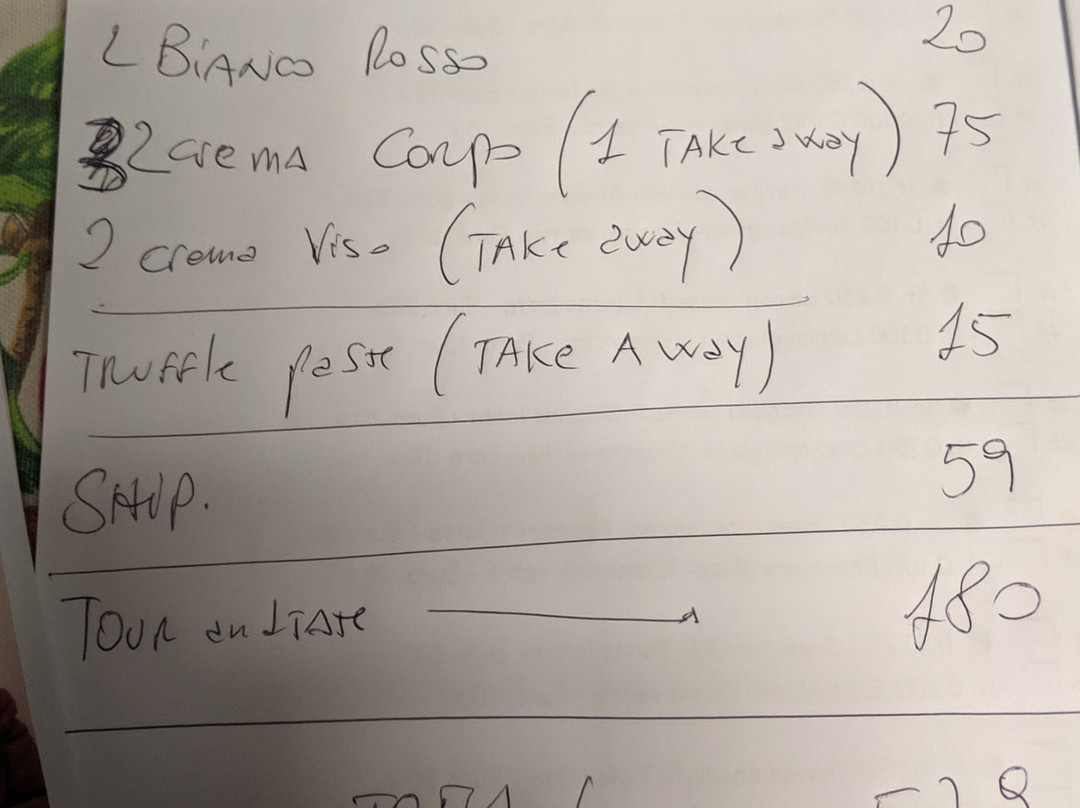 2 BiANCO Rosso 20
2 crema Corpo (1 TAKe away) 75
2 crema Viso (TAKe away) 10
TRuffle paste (TAKe AWay) 15
SHIP. 59
TOUR 180